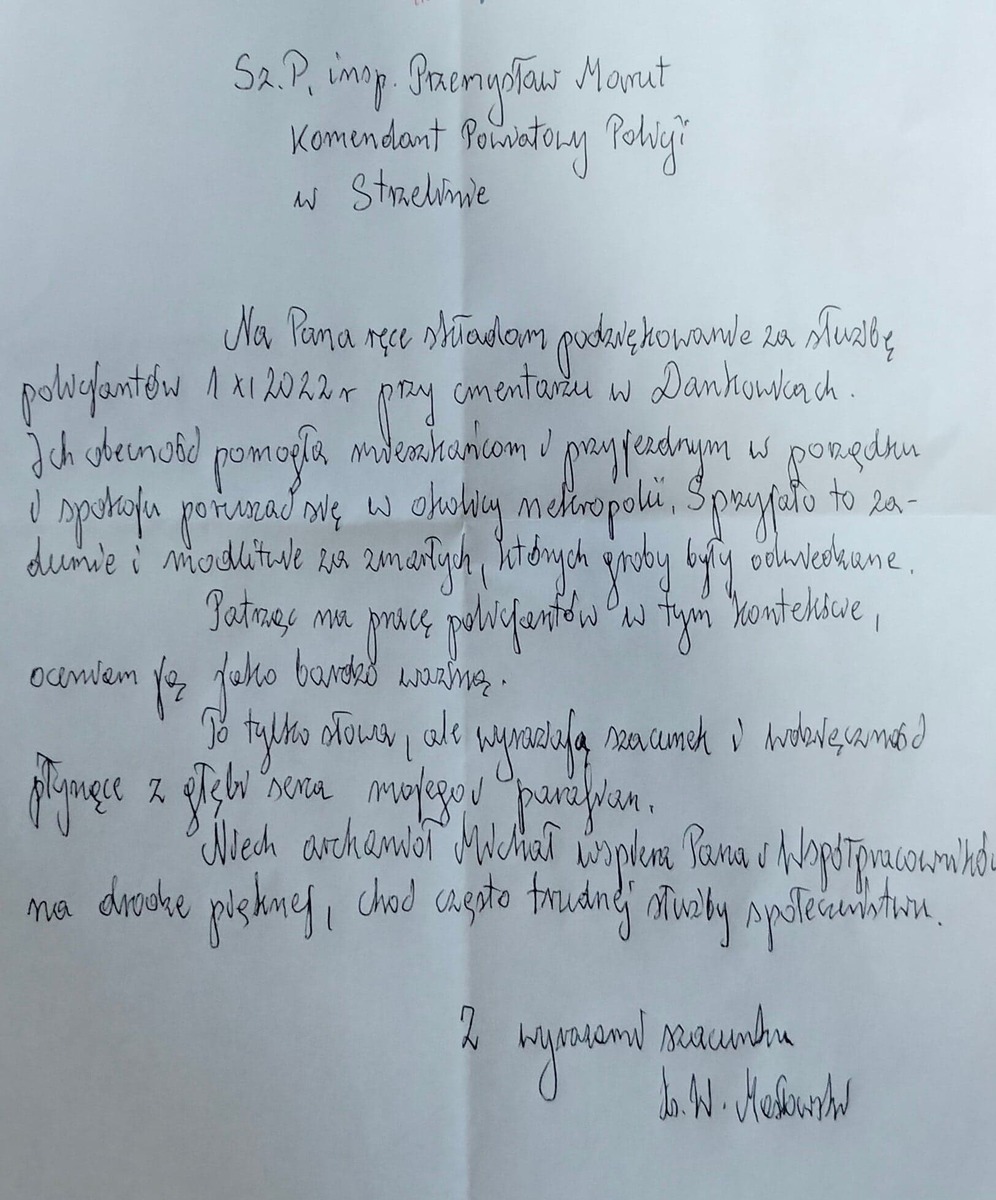 Sz. P. insp. Przemysław Marut
Komendant Powiatowy Policji
w Strzelinie
Na Pana ręce składam podziękowanie za służbę
policjantów 1 XI 2022 r przy cmentarzu w Dankowicach.
Ich obecność pomogła mieszkańcom i przyjezdnym w porządku
i spokoju poruszać się w okolicy nekropolii. Sprzyjało to za-
dumie i modlitwie za zmarłych, których groby były odwiedzane.
Patrząc na pracę policjantów w tym kontekście,
oceniam ją jako bardzo ważną.
To tylko słowa, ale wyrażają szacunek i wdzięczność
płynące z głębi serca mojego i parafian.
Niech archanioł Michał wspiera Pana i Współpracowników
na drodze pięknej, choć często trudnej służby społeczeństwu.
Z wyrazami szacunku
ks. W.